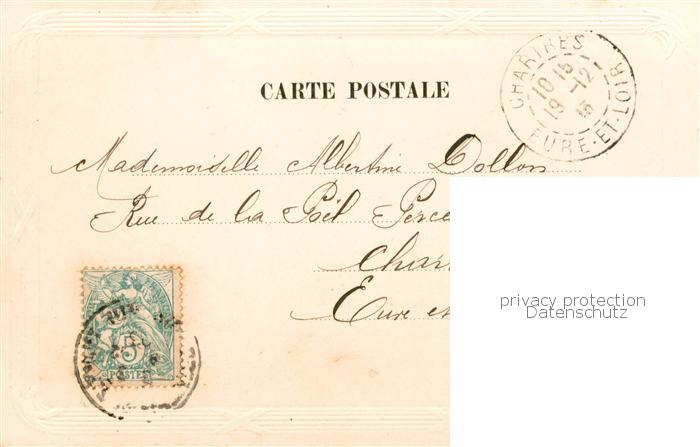 CARTE POSTALE
CHARTRES
10 15
19 -12
EURE-ET-LOIR
Mademoiselle Albertine Dollon
Rue de la Poêl Perce
Char
Eure et
5
POSTES
privacy protection
Datenschutz